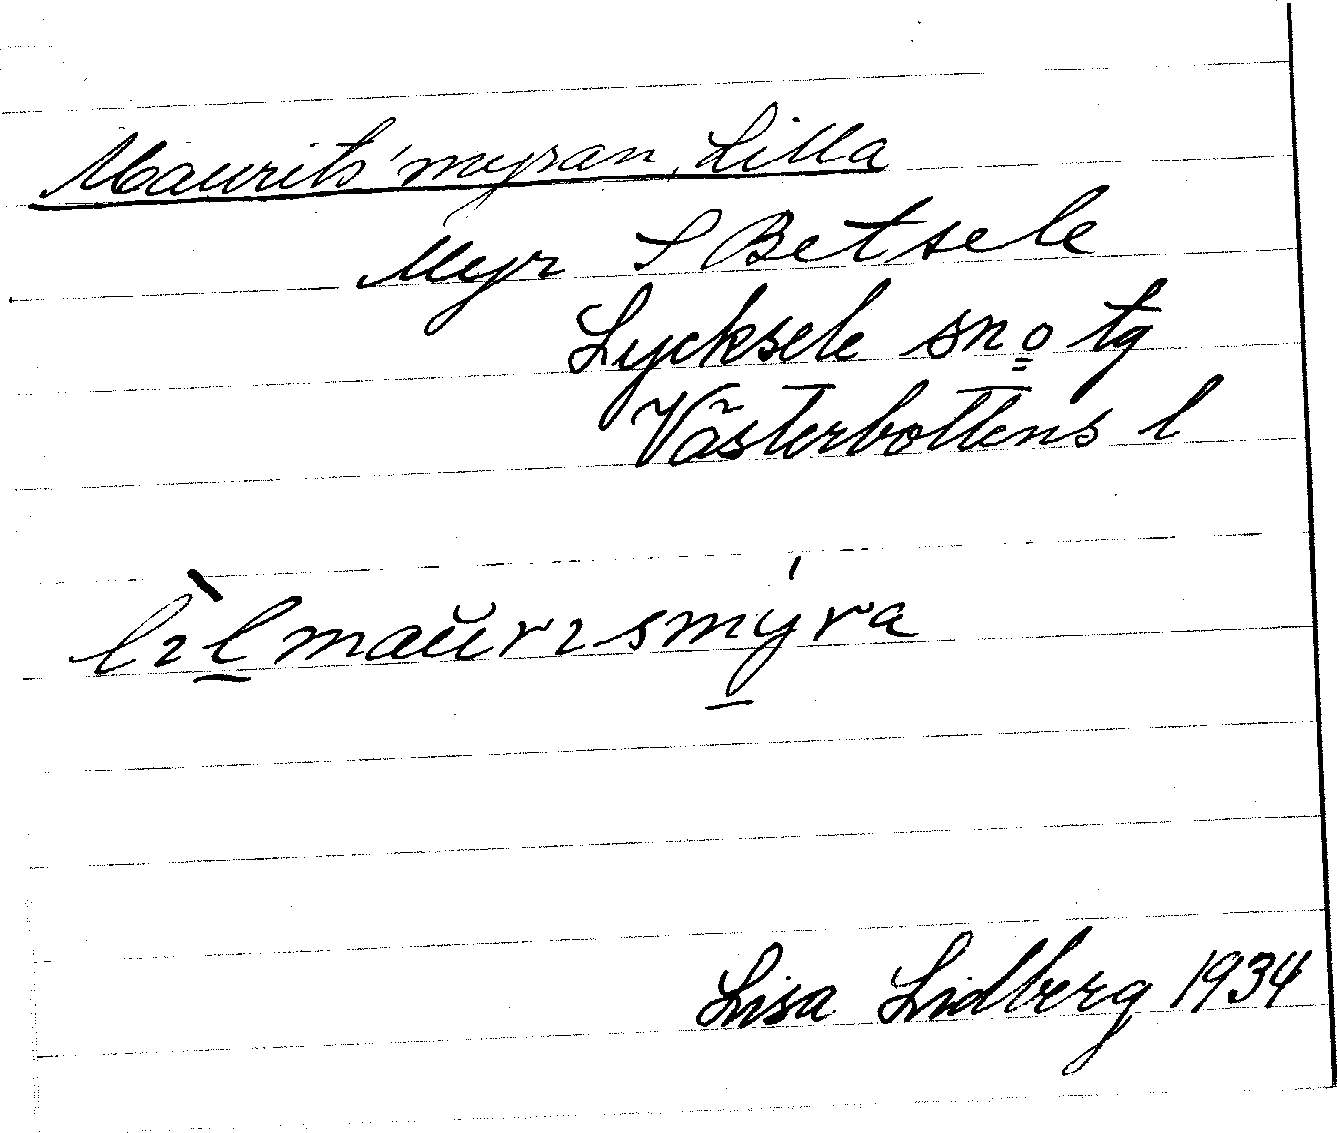 Maurits'myran, Lilla
Myr S Betsele
Lycksele sn o tg
Västerbottens l
lɩ̀l maŭrɩsmýra
Lisa Lidberg 1934